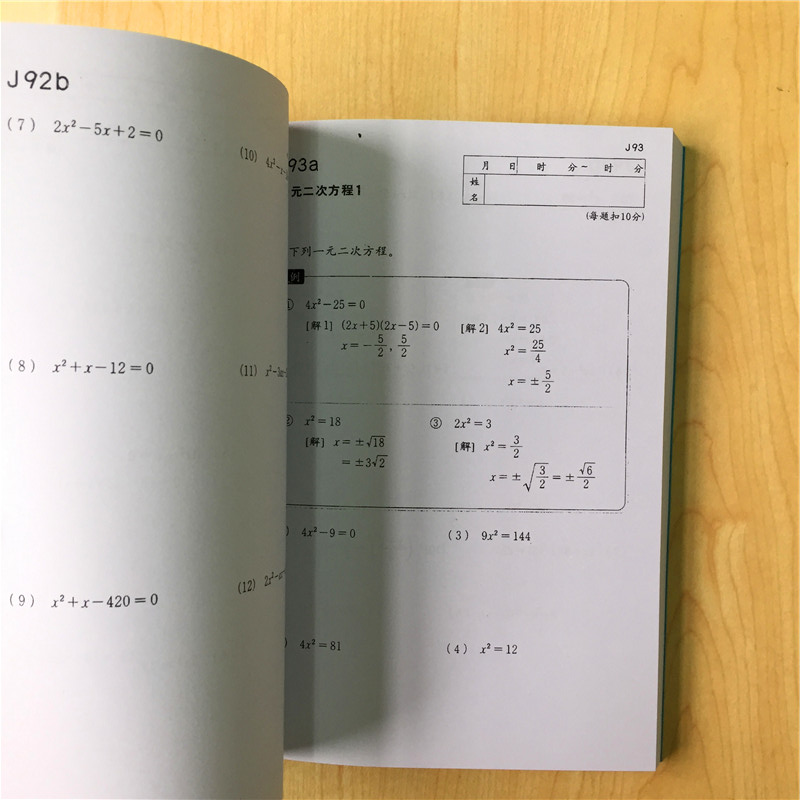 J92b
(7) 2x²−5x+2=0
(8) x²+x−12=0
(9) x²+x−420=0
(10) 4x²−
(11) x²−3x−
(12) 2x²−
J93
93a
元二次方程1
月 日 时 分~ 时 分
姓名
(每题扣10分)
下列一元二次方程。
例
① 4x²−25=0
[解1] (2x+5)(2x−5)=0
x=−5/2, 5/2
[解2] 4x²=25
x²=25/4
x=±5/2
② x²=18
[解] x=±√18
=±3√2
③ 2x²=3
[解] x²=3/2
x=±√(3/2)=±√6/2
) 4x²−9=0
(3) 9x²=144
) 4x²=81
(4) x²=12